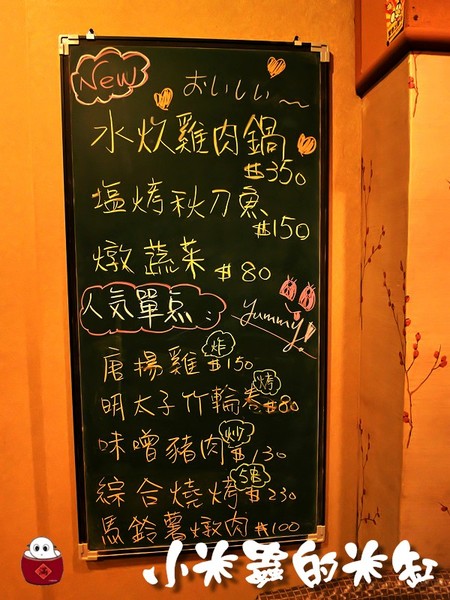 New
おいしい〜
水炊雞肉鍋
$350
塩烤秋刀魚
$150
燉蔬菜 $80
人気單点
yummy!
唐揚雞 炸 $150
明太子竹輪卷 烤 $80
味噌豬肉 炒 $130
綜合燒烤 5串 $230
馬鈴薯燉肉 $100
小米蟲的米缸